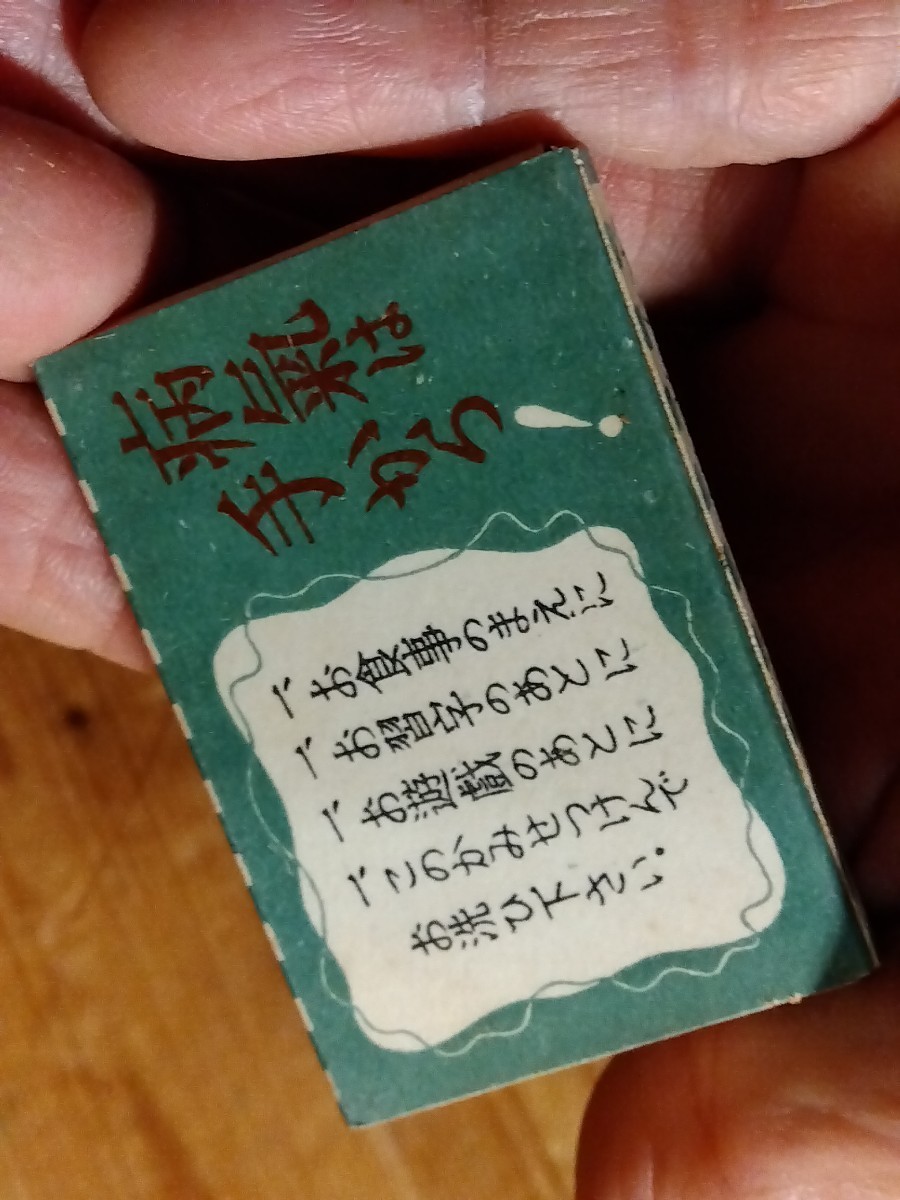 病氣は
手から!
一、お食事のまえに
一、お習字のあとに
一、お遊戯のあとに
一、このかみせつけんで
お洗ひ下さい。